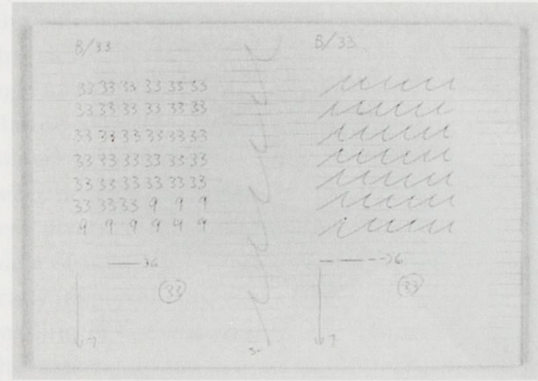 B/33
33 33 33 33 33 33
33 33 33 33 33 33
33 33 33 33 33 33
33 33 33 33 33 33
33 33 33 33 33 33
33 33 33 9 9 9
9 9 9 9 9 9
→6
33
7
B/33
→6
33
7